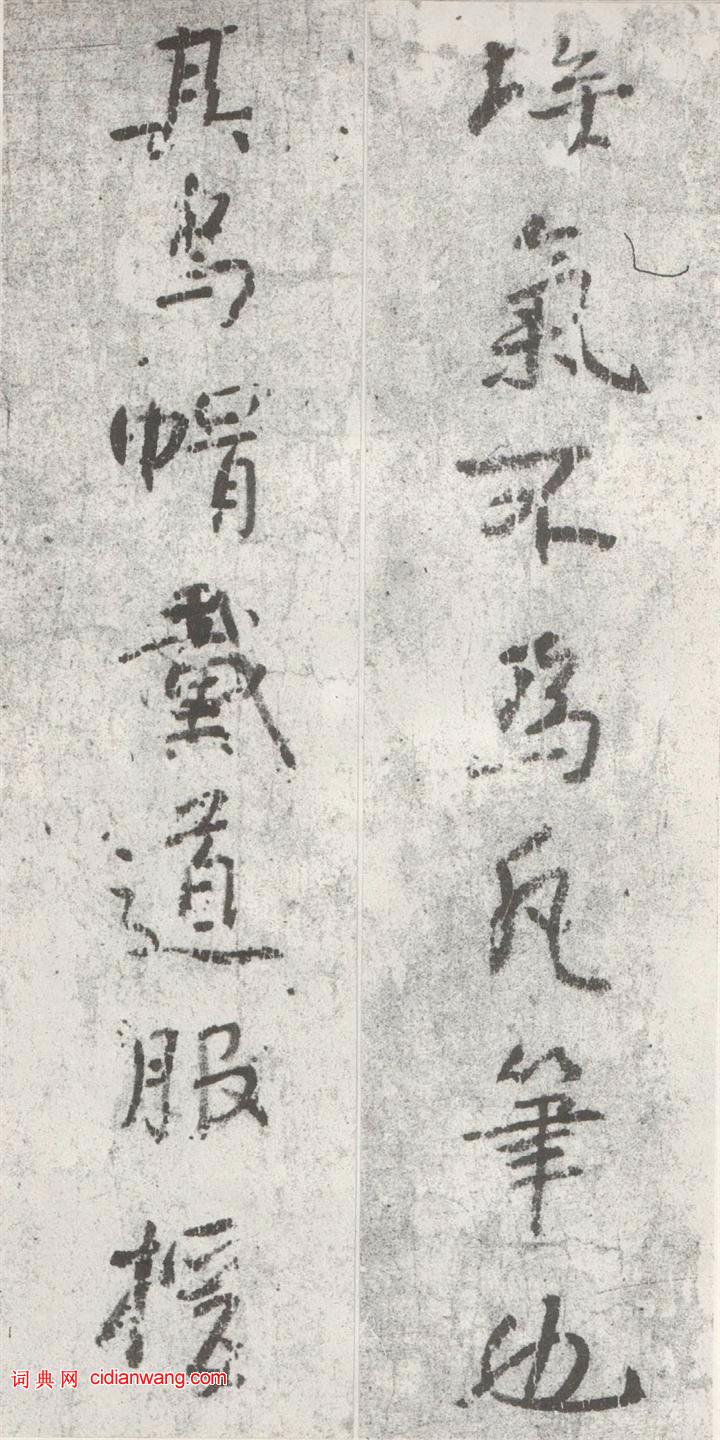 埃氣不為凡筆也
其烏帽戴道服援
词典网 cidianwang.com